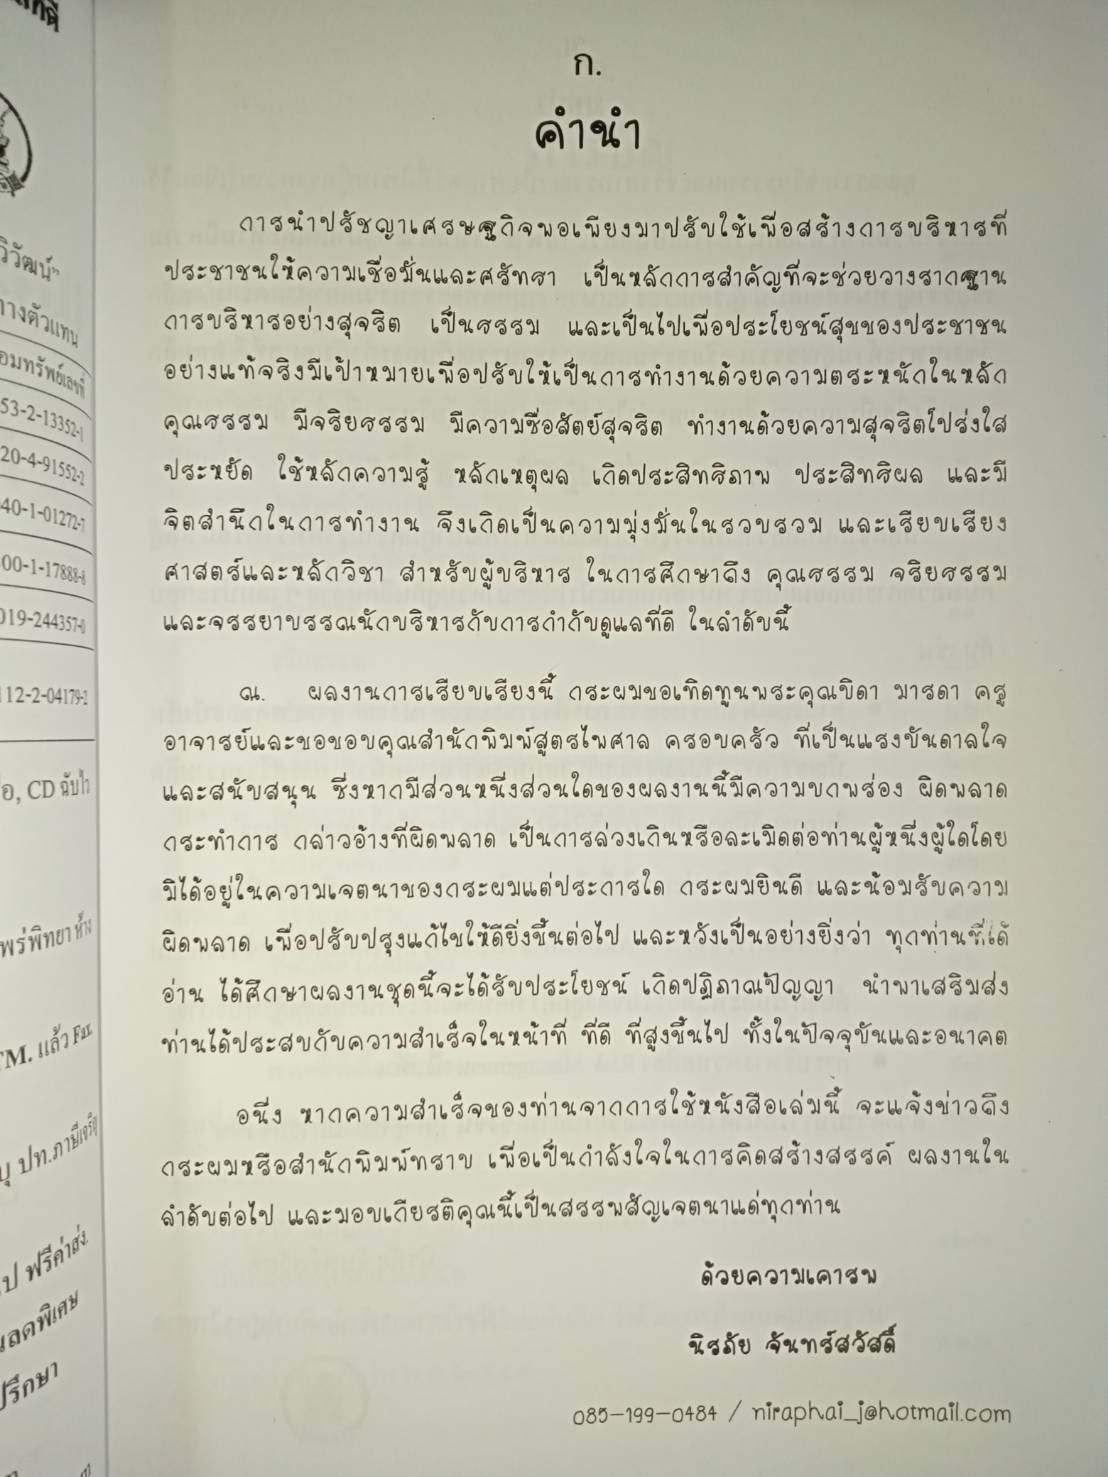 ก.
คำนำ
การนำปรัชญาเศรษฐกิจพอเพียงมาปรับใช้เพื่อสร้างการบริหารที่
ประชาชนให้ความเชื่อมั่นและศรัทธา เป็นหลักการสำคัญที่จะช่วยวางรากฐาน
การบริหารอย่างสุจริต เป็นธรรม และเป็นไปเพื่อประโยชน์สุขของประชาชน
อย่างแท้จริงมีเป้าหมายเพื่อปรับให้เป็นการทำงานด้วยความตระหนักในหลัก
คุณธรรม มีจริยธรรม มีความซื่อสัตย์สุจริต ทำงานด้วยความสุจริตโปร่งใส
ประหยัด ใช้หลักความรู้ หลักเหตุผล เกิดประสิทธิภาพ ประสิทธิผล และมี
จิตสำนึกในการทำงาน จึงเกิดเป็นความมุ่งมั่นในรวบรวม และเรียบเรียง
ศาสตร์และหลักวิชา สำหรับผู้บริหาร ในการศึกษาถึง คุณธรรม จริยธรรม
และจรรยาบรรณนักบริหารกับการกำกับดูแลที่ดี ในลำดับนี้
ณ. ผลงานการเรียบเรียงนี้ กระผมขอเทิดทูนพระคุณบิดา มารดา ครู
อาจารย์และขอขอบคุณสำนักพิมพ์สูตรไพศาล ครอบครัว ที่เป็นแรงบันดาลใจ
และสนับสนุน ซึ่งหากมีส่วนหนึ่งส่วนใดของผลงานนี้มีความบกพร่อง ผิดพลาด
กระทำการ กล่าวอ้างที่ผิดพลาด เป็นการล่วงเกินหรือละเมิดต่อท่านผู้หนึ่งผู้ใดโดย
มิได้อยู่ในความเจตนาของกระผมแต่ประการใด กระผมยินดี และน้อมรับความ
ผิดพลาด เพื่อปรับปรุงแก้ไขให้ดียิ่งขึ้นต่อไป และหวังเป็นอย่างยิ่งว่า ทุกท่านที่ได้
อ่าน ได้ศึกษาผลงานชุดนี้จะได้รับประโยชน์ เกิดปฏิภาณปัญญา นำพาเสริมส่ง
ท่านได้ประสบกับความสำเร็จในหน้าที่ ที่ดี ที่สูงขึ้นไป ทั้งในปัจจุบันและอนาคต
อนึ่ง หากความสำเร็จของท่านจากการใช้หนังสือเล่มนี้ จะแจ้งข่าวถึง
กระผมหรือสำนักพิมพ์ทราบ เพื่อเป็นกำลังใจในการคิดสร้างสรรค์ ผลงานใน
ลำดับต่อไป และมอบเกียรติคุณนี้เป็นสรรพสัญเจตนาแด่ทุกท่าน
ด้วยความเคารพ
นิรภัย จันทร์สวัสดิ์
085-199-0484 / niraphai_j@hotmail.com
วิวัฒน์"
างตัวแทน
อมทรัพย์เลขที่
53-2-13352-1
20-4-91552-2
040-1-01272-7
00-1-17888-8
019-244357-0
112-2-04179-2
อ, CD ฉบับไว
พร่พิทยา ห้าง
TM. แล้ว Fax
ปท.ภาษีเจริญ
ป ฟรีค่าส่ง
ลดพิเศษ
ปรึกษา